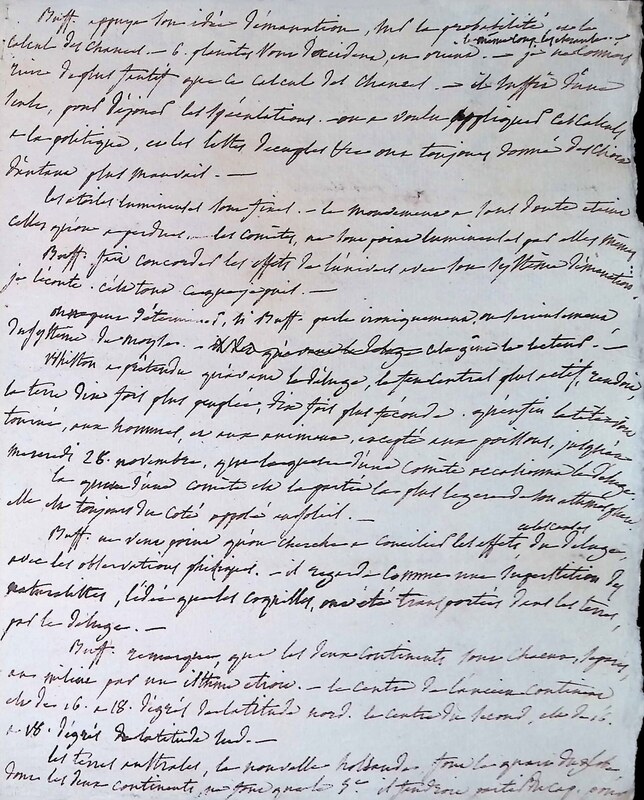 Buff. appuye son idée d'émanation, sur la probabilité et le
calcul des chances. — 6. planètes vont d'occident en orient. — je ne connois
rien de plus fautif que ce calcul des chances — il suffit d'une
seule, pour déjouer les spéculations. on a voulu appliquer ces calculs
a la politique, et les lettes d'euples &c ont toujours donné des choix
d'autant plus mauvais. —
les étoiles lumineuses sont fixes. — le mouvement a sans doute éteint
celles qu'on a perdues. — les comètes, ne sont point lumineuses par elles mêmes
Buff. fait concorder les effets de l'univers avec son système d'émanation
je l'écoute. c'est tout ce que je puis. —
on ne peut déterminer, si Buff. parle ironiquement, ou sérieusement
du système de — cela gêne le lecteur. —
Whiston a prétendu qu'avant le déluge, le feu central plus actif, rendoit
la terre dix fois plus peuplée, dix fois plus féconde. qu'enfin la tête
tourna, aux hommes, et aux animaux, excepté aux poissons, jusqu'au
mercredi 28. novembre, que la queue d'une comète occasionna le déluge
la queue d'une comète est la partie la plus légère de son atmosphère
elle est toujours du coté opposé au soleil. —
Buff. ne veut point qu'on cherche a concilier les effets du déluge,
avec les observations phisiques. — il regarde comme une superstition des
naturalistes, l'idée que les coquilles, ont été transportées dans les terres,
par le déluge. —
Buff. remarque, que les deux continents sont chacun, séparés,
au milieu par un isthme étroit. — le centre de l'ancien continent
est de 16. a 18. dégrés de latitude nord. le centre du second, est de 16.
a 18. dégrés de latitude sud. —
les terres australes, la nouvelle hollande, font le quart du globe
dont les deux continents, ne font que le 5e. il faudroit partir du cap. pour